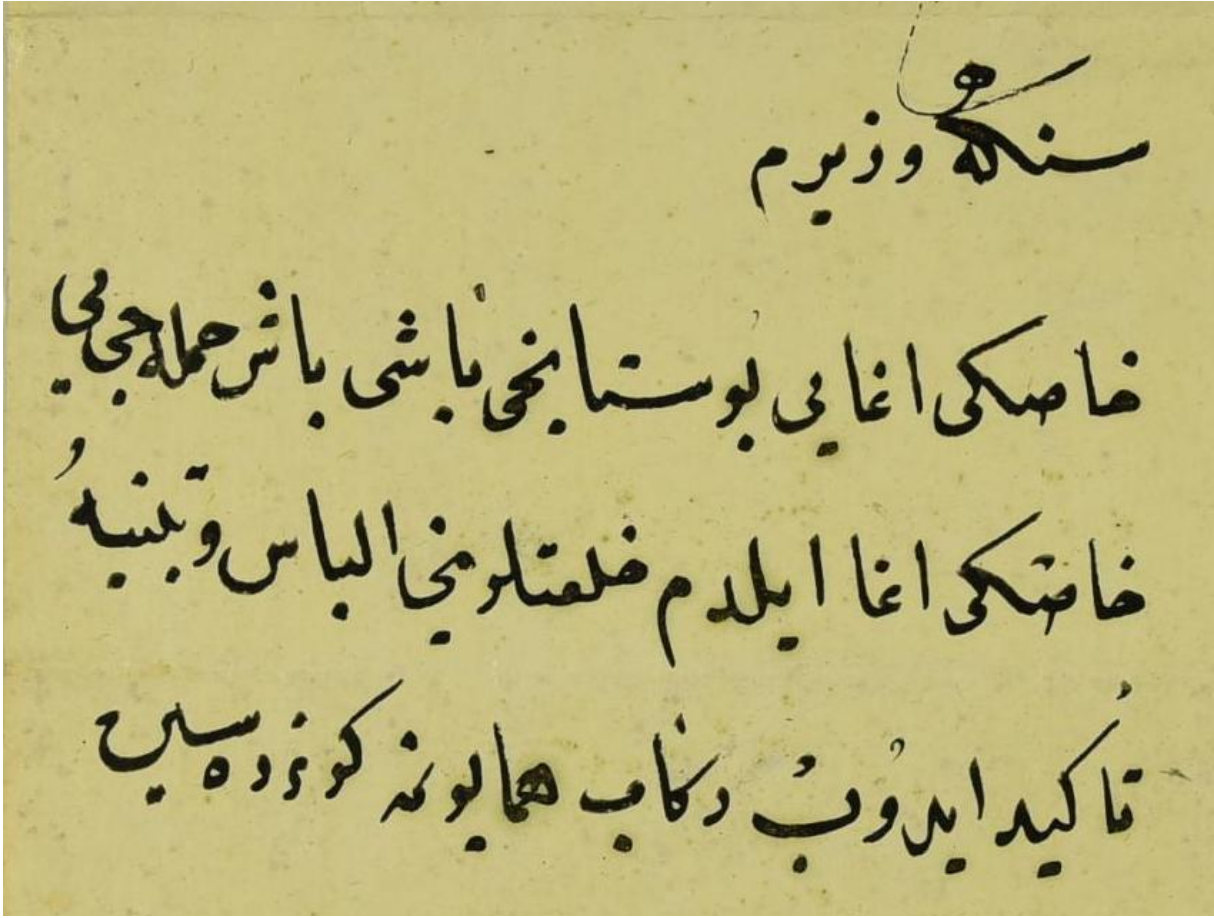 سنكه وزيرم
خاصكى اغايى بوستانجى باشى باش حمله جى يى
خاصكى اغا ايلدم خلعتلرينى الباس و تنبيه
تأكيد ايدوب ركاب همايونمه كوندره سين